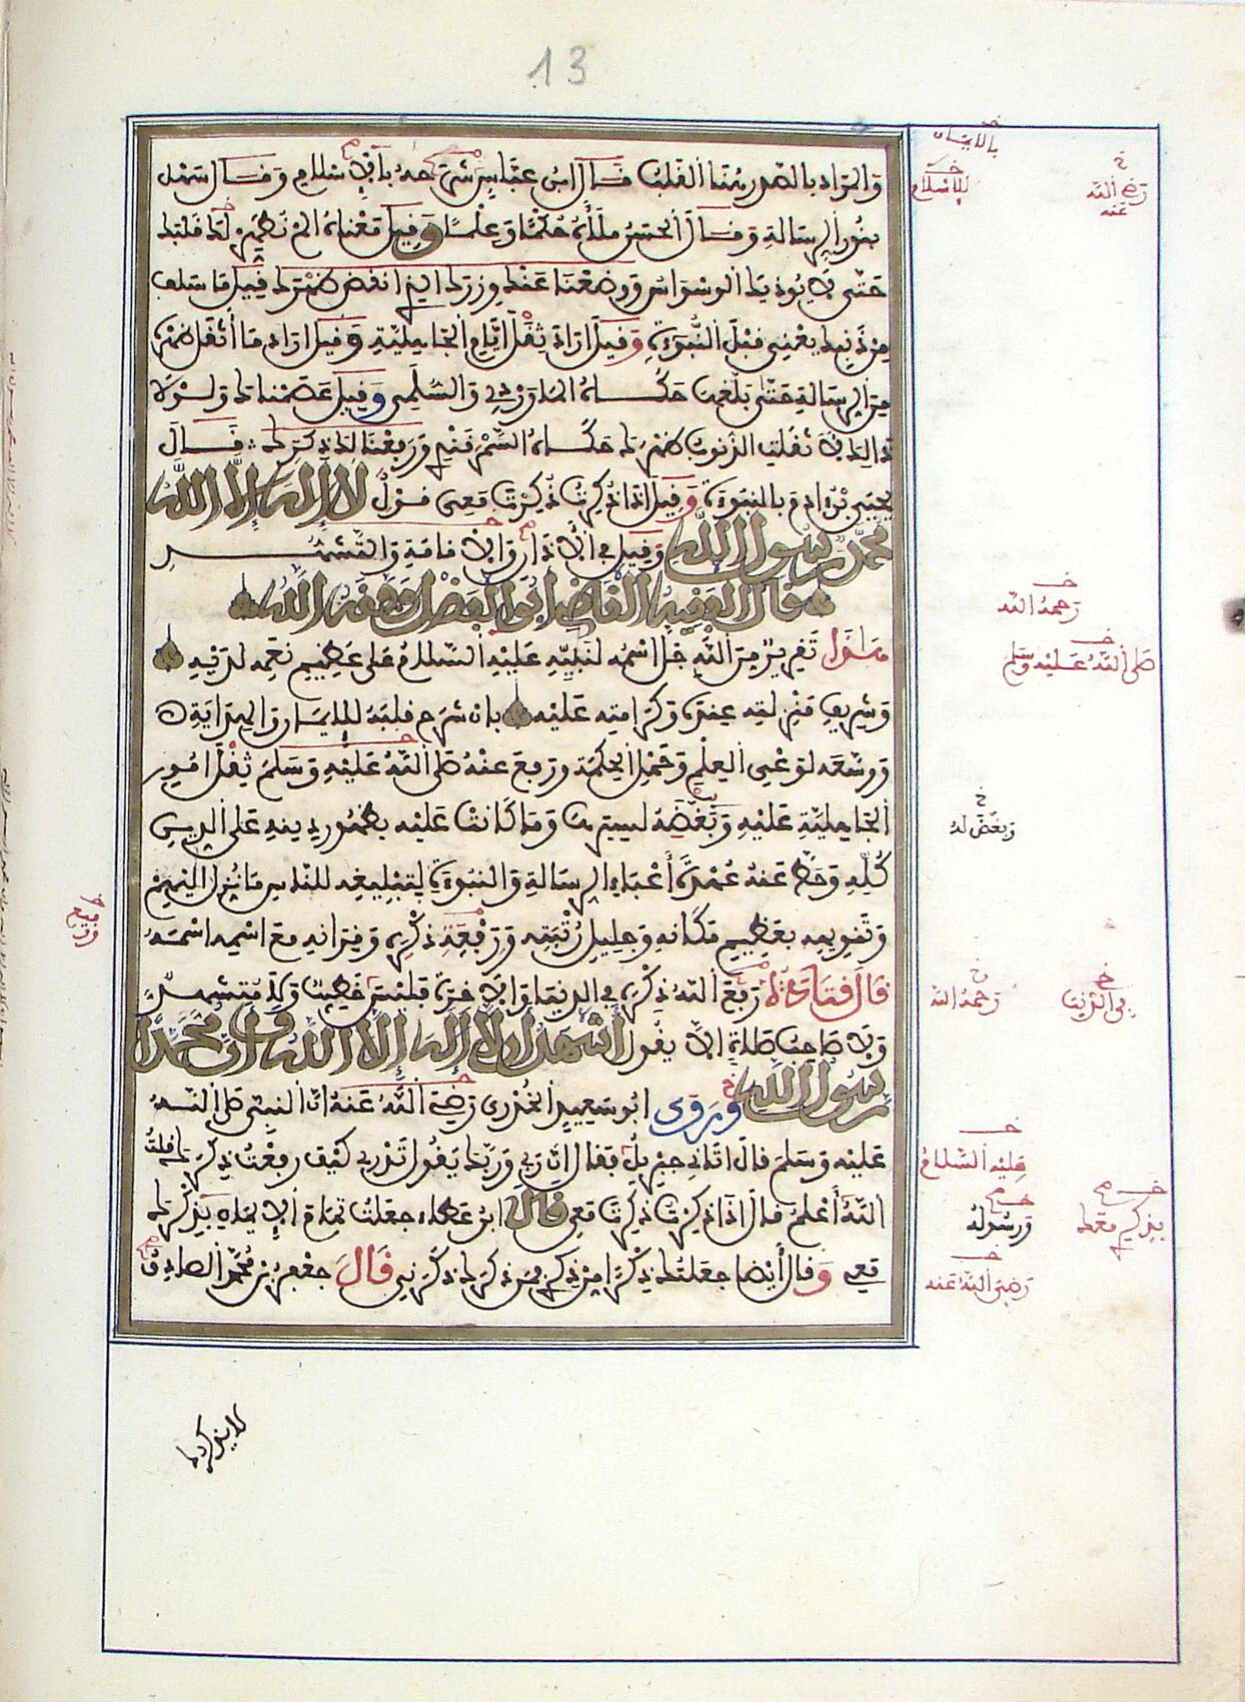 13
والمراد بالصدر هنا القلب قال ابن عباس شرحه بالاسلام وقال سهل
بنور الرسالة وقال الحسن ملأه حكما وعلما وقيل معناه الم نطهر لك قلبك
حتى لا يوذيك الوسواس ووضعنا عنك وزرك الذي انقض ظهرك قيل ما سلف
من ذنبك يعني قبل النبوة وقيل اراد ثقل ايام الجاهلية وقيل اراد ما أثقل ظهره
من الرسالة حتى بلغها حكاه الماوردي والسلمي وقيل عصمناك ولولا
ذالك لاثقلت الذنوب ظهرك حكاه السمرقندي ورفعنا لك ذكرك قال
يحيى بن ادم بالنبوة وقيل اذا ذكرت ذكرت معي قول لا إله إلا الله
محمد رسول الله وقيل في الأذان والاقامة والتشهد
قال الفقيه القاضي ابو الفضل وفقه الله
هذا تقرير من الله جل اسمه لنبيه عليه السلام على عظيم نعمه لديه
وشريف منزلته عنده وكرامته عليه بان شرح قلبه للايمان والهداية
ووسعه لوعي العلم وحمل الحكمة ورفع عنه صلى الله عليه وسلم ثقل امور
الجاهلية عليه وبغضه لسيرها وما كانت عليه بظهور دينه على الدين
كله وحط عنه عهدة أعباء الرسالة والنبوة لتبليغه للناس ما نزل اليهم
وتنويهه بعظيم مكانه وجليل رتبته ورفعة ذكره وقرانه مع اسمه اسمه
قال قتادة رفع الله ذكره في الدنيا والاخرة فليس خطيب ولا متشهد
ولا صاحب صلاة الا يقول أشهد ان لا إله إلا الله وان محمدا
رسول الله وروى ابو سعيد الخدري رضي الله عنه ان النبي صلى الله
عليه وسلم قال اتاني جبريل فقال ان ربي وربك يقول تدري كيف رفعت ذكرك قلت
الله أعلم قال اذا ذكرت ذكرت معي قال ابن عطاء جعلت تمام الايمان بذكرك
معي وقال أيضا جعلتك ذكرا من ذكري فمن ذكرك ذكرني قال جعفر بن محمد الصادق
لا يذكرك
بالايمان
للاسلام
رضي الله عنه
رحمه الله
صلى الله عليه وسلم
وبغض له
رحمه الله
في الدنيا
عليه السلام
ورسوله
بذكري معك
رضي الله عنه